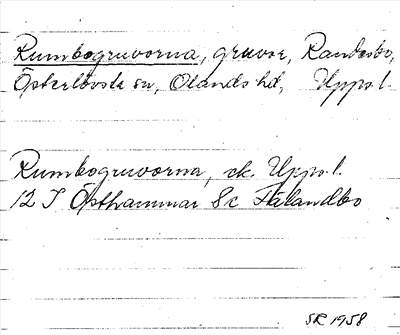 Rumbogruvorna, gruvor, Randbo,
Österlövsta sn, Olands hd, Upps. l.
Rumbogruvorna, ek. Upps. l.
12 I Östhammar 8c Fålandbo
SR 1958